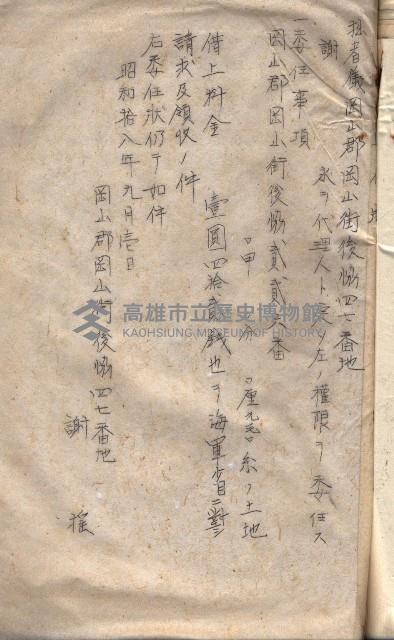 拙者儀岡山郡岡山街後協四七番地
謝 永ヲ代理人ト定メ左ノ權限ヲ委任ス
一委任事項
岡山郡岡山街後協貳貳 番
口甲 分 口厘九毛口糸ノ土地
借上料金 壹圓四拾貳錢也ヲ海軍省ニ對シ
請求及領收ノ件
右委任狀仍テ如件
昭和拾八年九月壱日
岡山郡岡山街後協四七番地
謝
高雄市立歷史博物館
KAOHSIUNG MUSEUM OF HISTORY